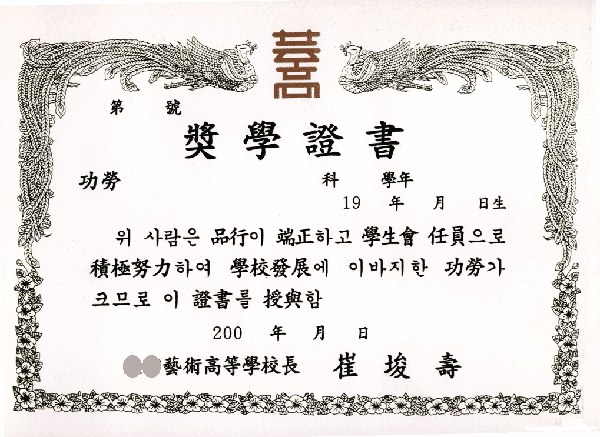 藝高
第 號
奬學證書
功勞 科 學年
19 年 月 日生
위 사람은 品行이 端正하고 學生會 任員으로
積極努力하여 學校發展에 이바지한 功勞가
크므로 이 證書를 授與함
200 年 月 日
藝術高等學校長 崔埈壽